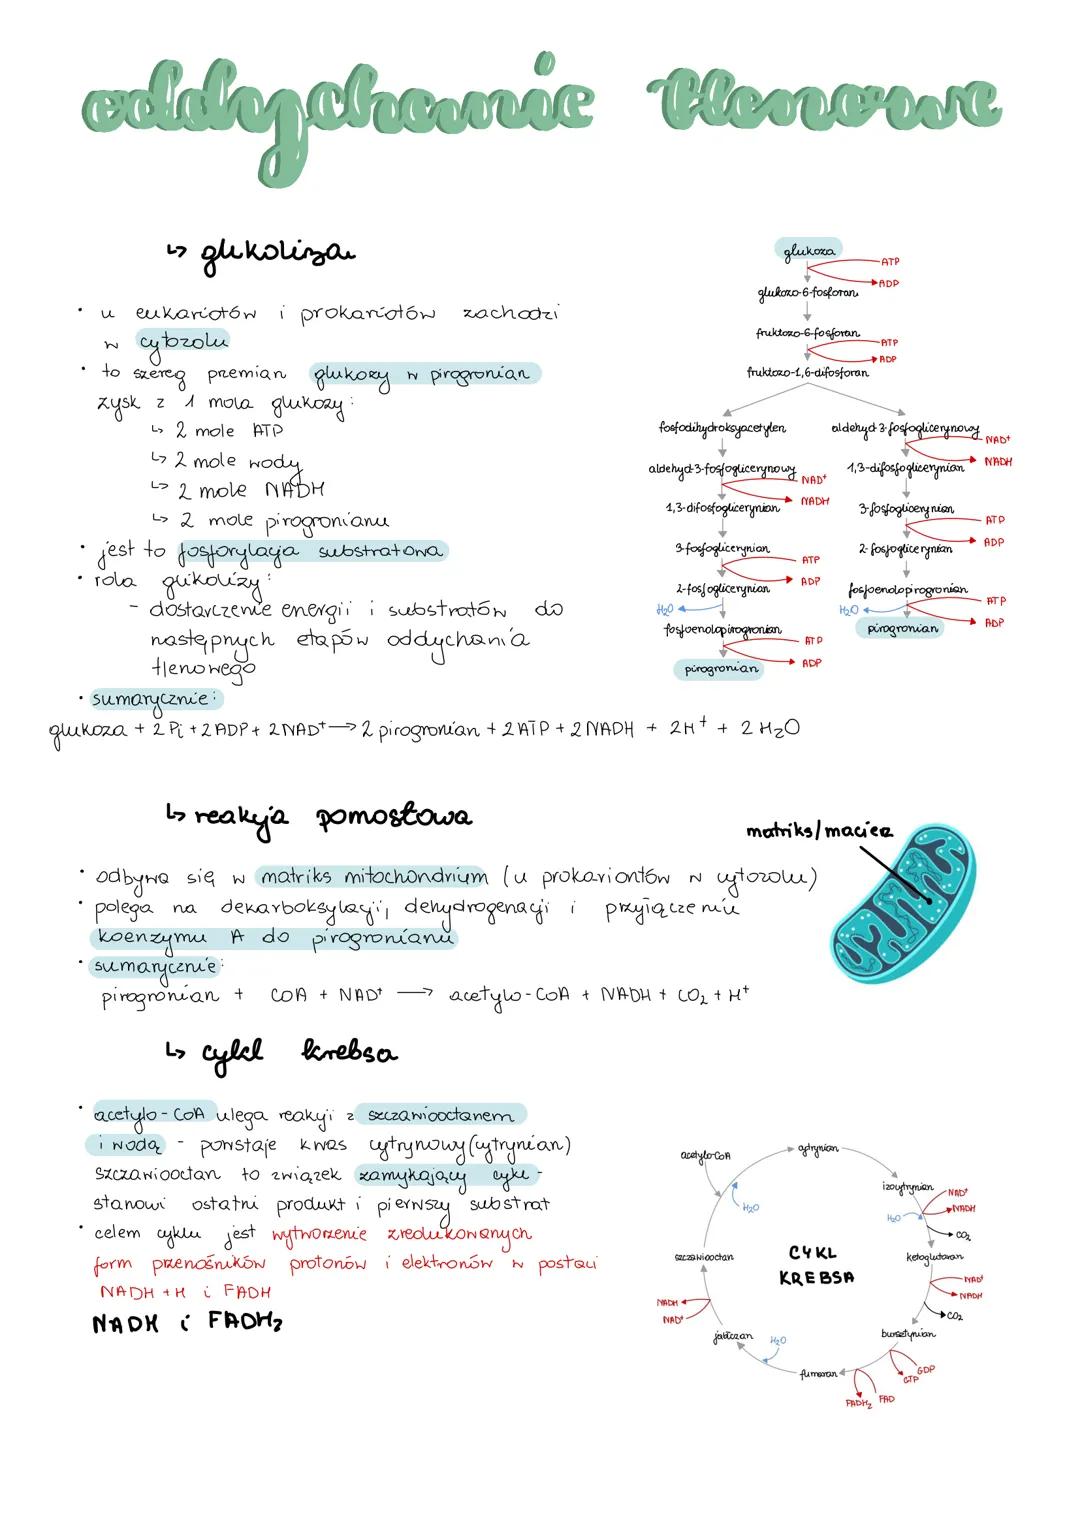 oddychanie tlenowe
↳ glikoliza
• u eukariotów i prokariotów zachodzi
w cytozolu
• to szereg przemian glukozy w pirogronian
zysk z 1 mola glukozy:
↳ 2 mole ATP
↳ 2 mole wody
↳ 2 mole NADH
↳ 2 mole pirogronianu
• jest to fosforylacja substratowa
• rola glikolizy:
- dostarczenie energii i substratów do
następnych etapów oddychania
tlenowego
• sumarycznie:
glukoza + 2 Pi + 2 ADP + 2 NAD⁺ → 2 pirogronian + 2 ATP + 2 NADH + 2H⁺ + 2 H₂O
glukoza
ATP
ADP
glukozo-6-fosforan
fruktozo-6-fosforan
ATP
ADP
fruktozo-1,6-difosforan
fosfodihydroksyacetylen
aldehyd-3-fosfoglicerynowy
NAD⁺
NADH
1,3-difosfoglicerynian
3-fosfoglicerynian
ATP
ADP
2-fosfoglicerynian
H₂O
fosfoenolopirogronian
ATP
ADP
pirogronian
aldehyd-3-fosfoglicerynowy
NAD⁺
NADH
1,3-difosfoglicerynian
3-fosfoglicerynian
ATP
ADP
2-fosfoglicerynian
fosfoenolopirogronian
H₂O
ATP
ADP
pirogronian
↳ reakcja pomostowa
• odbywa się w matriks mitochondrium (u prokariontów w cytozolu)
• polega na dekarboksylacji, dehydrogenacji i przyłączeniu
koenzymu A do pirogronianu
• sumarycznie:
pirogronian + CoA + NAD⁺ → acetylo-CoA + NADH + CO₂ + H⁺
matriks/macierz
↳ cykl krebsa
• acetylo-CoA ulega reakcji z szczawiooctanem
i wodą - powstaje kwas cytrynowy (cytrynian)
szczawiooctan to związek zamykający cykl -
stanowi ostatni produkt i pierwszy substrat
• celem cyklu jest wytworzenie zredukowanych
form przenośników protonów i elektronów w postaci
NADH + H i FADH
NADH i FADH₂
CYKL
KREBSA
acetylo-CoA
cytrynian
H₂O
izocytrynian
NAD⁺
NADH
H₂O
CO₂
ketoglutaran
NAD⁺
NADH
CO₂
bursztynian
GDP
GTP
FAD
FADH₂
fumaran
H₂O
jabłczan
NAD⁺
NADH
szczawiooctan